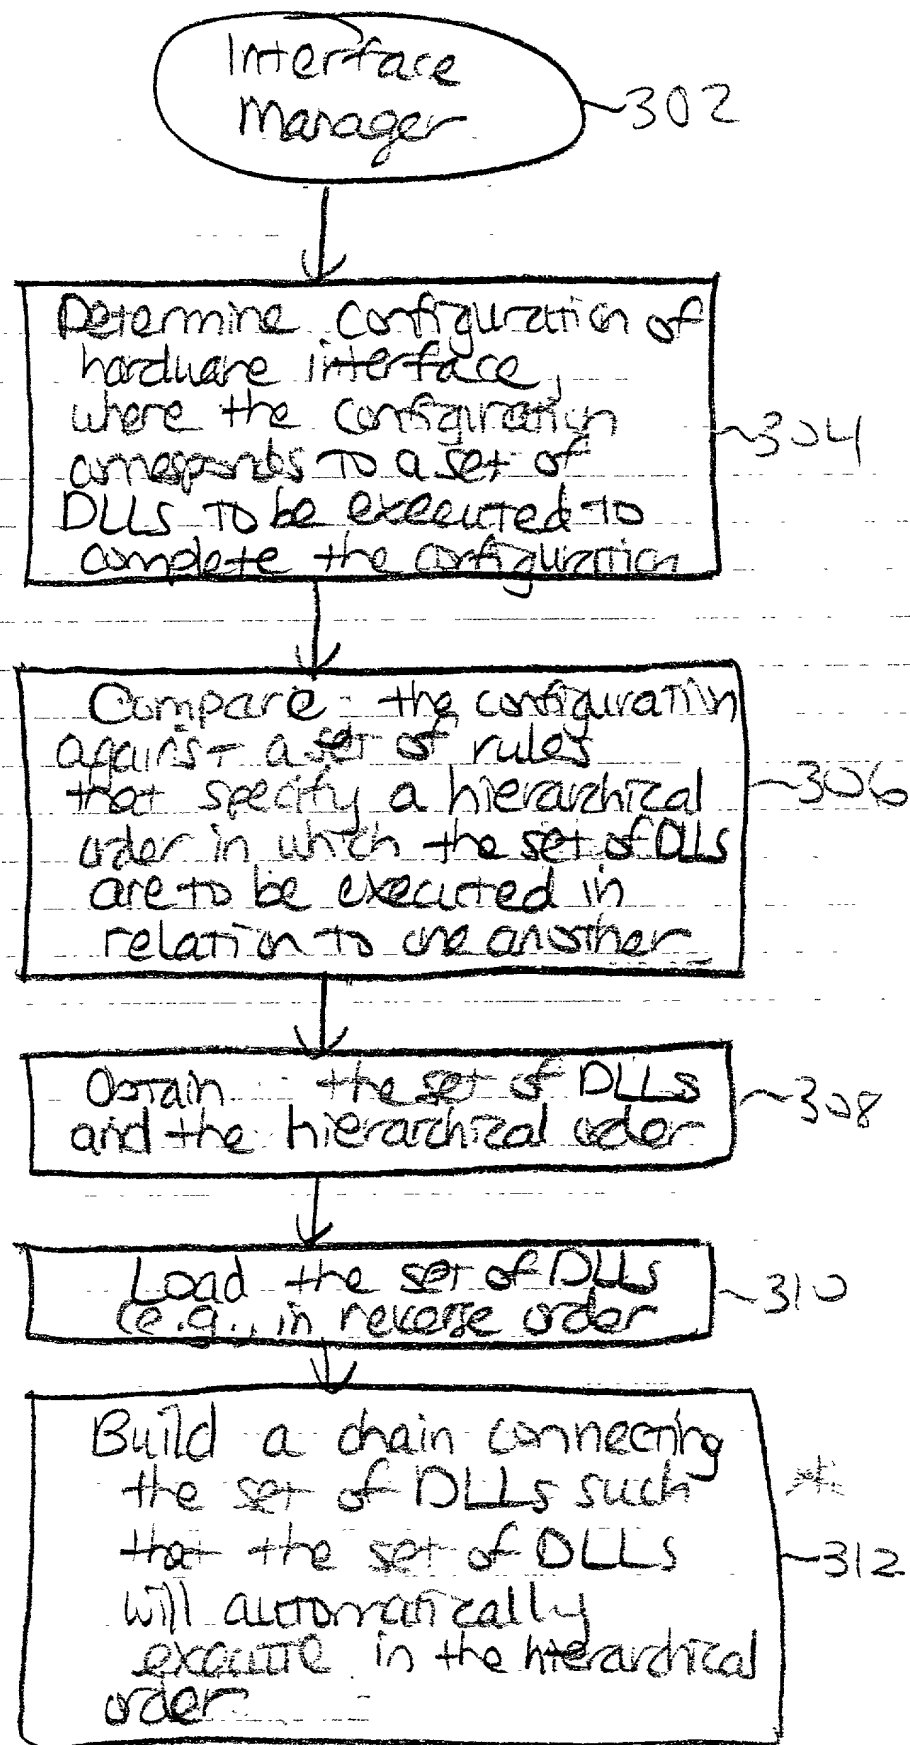 Interface
Manager
302
Determine configuration of
hardware interface,
where the configuration
corresponds to a set of
DLLs to be executed to
complete the configuration
304
Compare the configuration
against a set of rules
that specify a hierarchical
order in which the set of DLLs
are to be executed in
relation to one another
306
Obtain the set of DLLs
and the hierarchical order
308
Load the set of DLLs
(e.g., in reverse order
310
Build a chain connecting
the set of DLLs such
that the set of DLLs
will automatically
execute in the hierarchical
order.
*
312